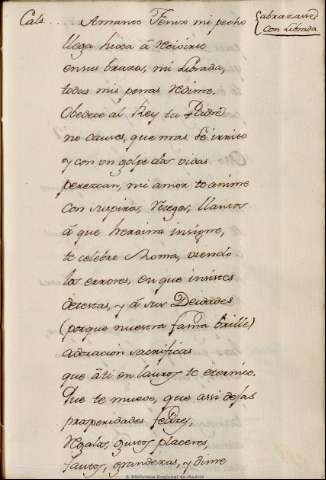 Cals... Amante Fenix mi pecho
{abrazanse
con Librada
llega hixa à
en sus brazos, mi Librada,
todas mis penas redime.
Obedece al Rey tu Padre
no causes, que mas se irrite
y con un golpe dos vidas
perezcan, mi amor te anime
con suspiros, ruegos, llantos
à que heroina insigne,
te celebre Roma, viendo
los errores, en que insistes
detestas, y à sus Deidades
(porque nuestra fama brille)
adoracion sacrificas
que à ti en lauros te eternice.
Que te mueve, que assi dejas
prosperidades felices,
regalos, gustos placeres,
faustos, grandezas, y dime
© Biblioteca Regional de Madrid